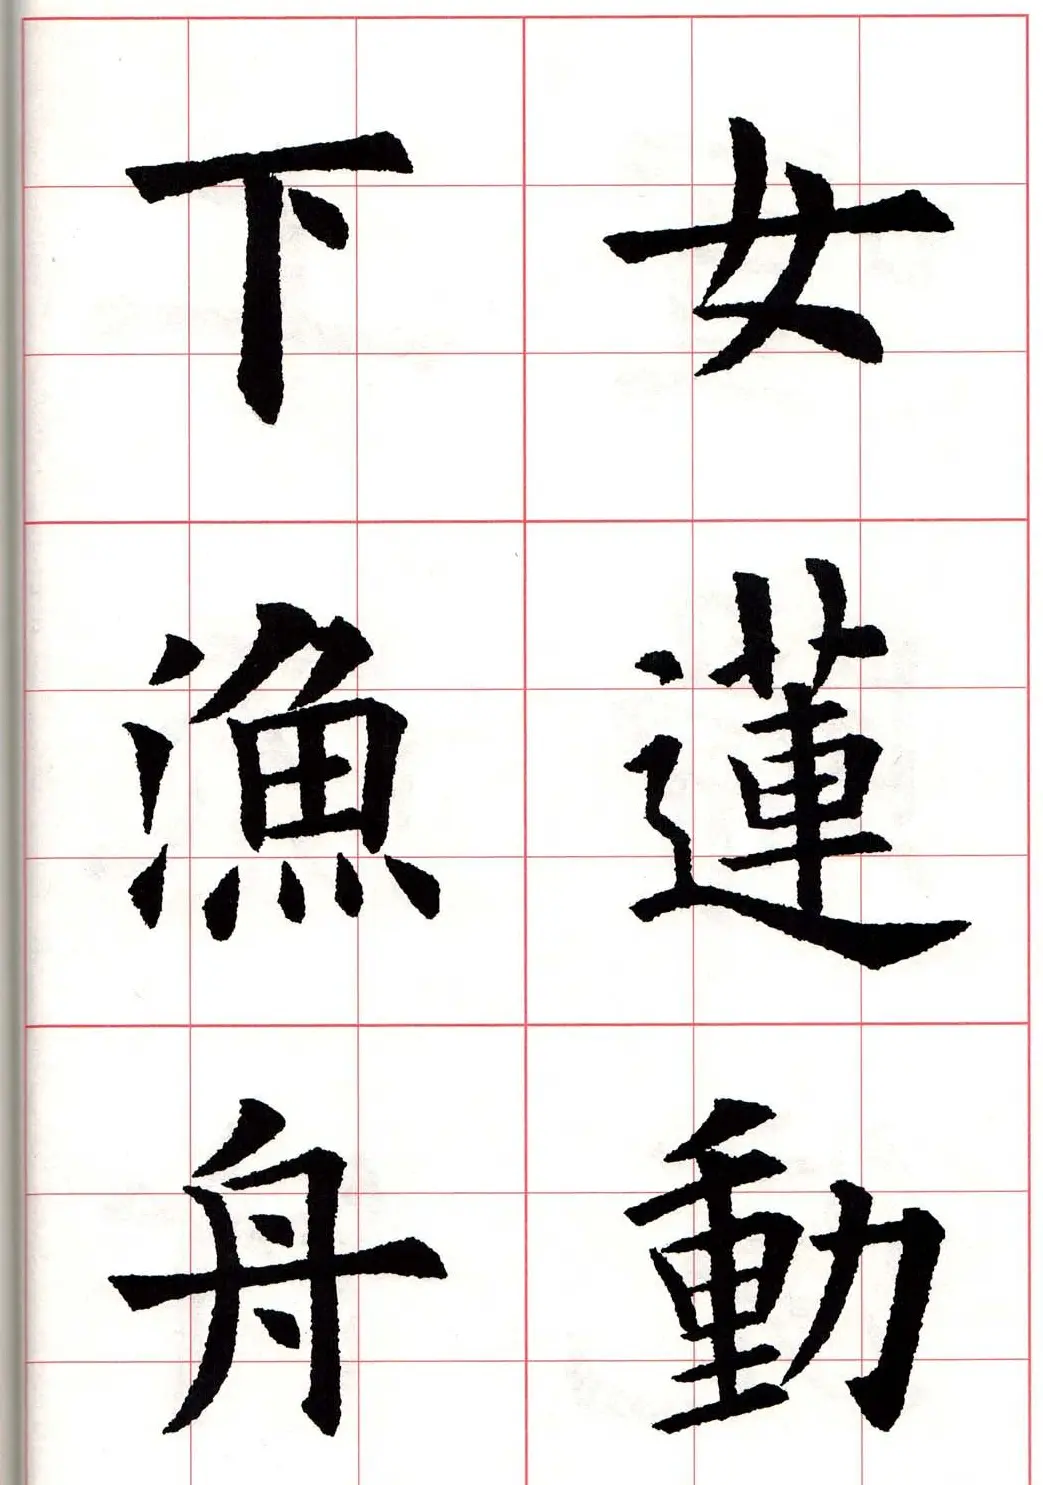 女蓮動
下漁舟